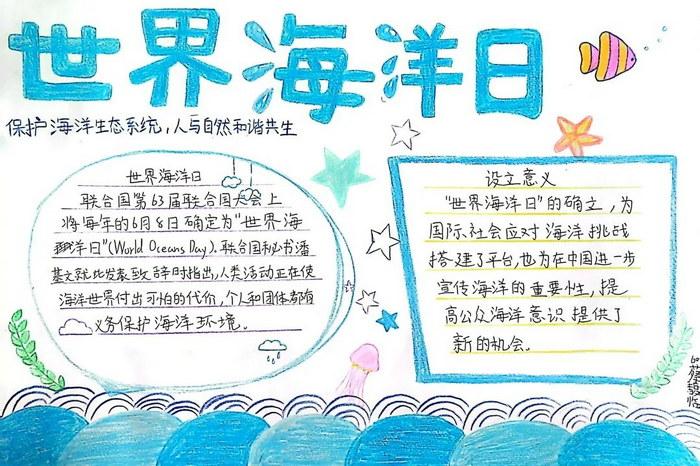 世界海洋日
保护海洋生态系统，人与自然和谐共生
世界海洋日
联合国第63届联合国大会上
将每年的6月8日确定为"世界海
洋日"(World Oceans Day)，联合国秘书潘
基文就此发表致辞时指出，人类活动正在使
海洋世界付出可怕的代价，个人和团体都有
义务保护海洋环境。
设立意义
"世界海洋日"的确立，为
国际社会应对海洋挑战
搭建了平台，也为在中国进一步
宣传海洋的重要性，提
高公众海洋意识提供了
新的机会。